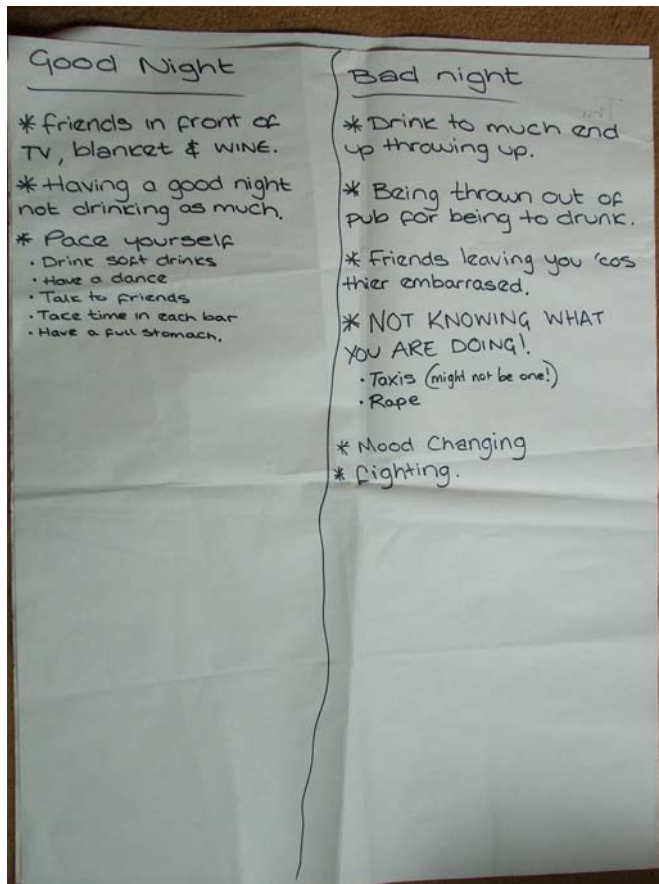 Good Night
* friends in front of
TV, blanket & WINE.
* Having a good night
not drinking as much.
* Pace yourself
· Drink soft drinks
· Have a dance
· Talk to friends
· Tace time in each bar
· Have a full stomach.
Bad night
* Drink to much end
up throwing up.
* Being thrown out of
pub for being to drunk.
* Friends leaving you 'cos
thier embarrased.
* NOT KNOWING WHAT
YOU ARE DOING!
· Taxis (might not be one!)
· Rape
* Mood Changing
* fighting.